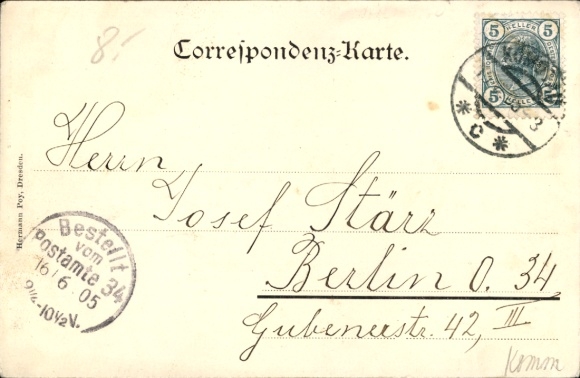 8.-
Correspondenz-Karte.
5 HELLER 5
5
Herrn
Josef Stärz
Berlin O. 34
Gubenerstr. 42, III
Hermann Poy, Dresden.
Bestellt
vom
Postamte 34
16/6 05
9¼-10½V.
* C *
Komm